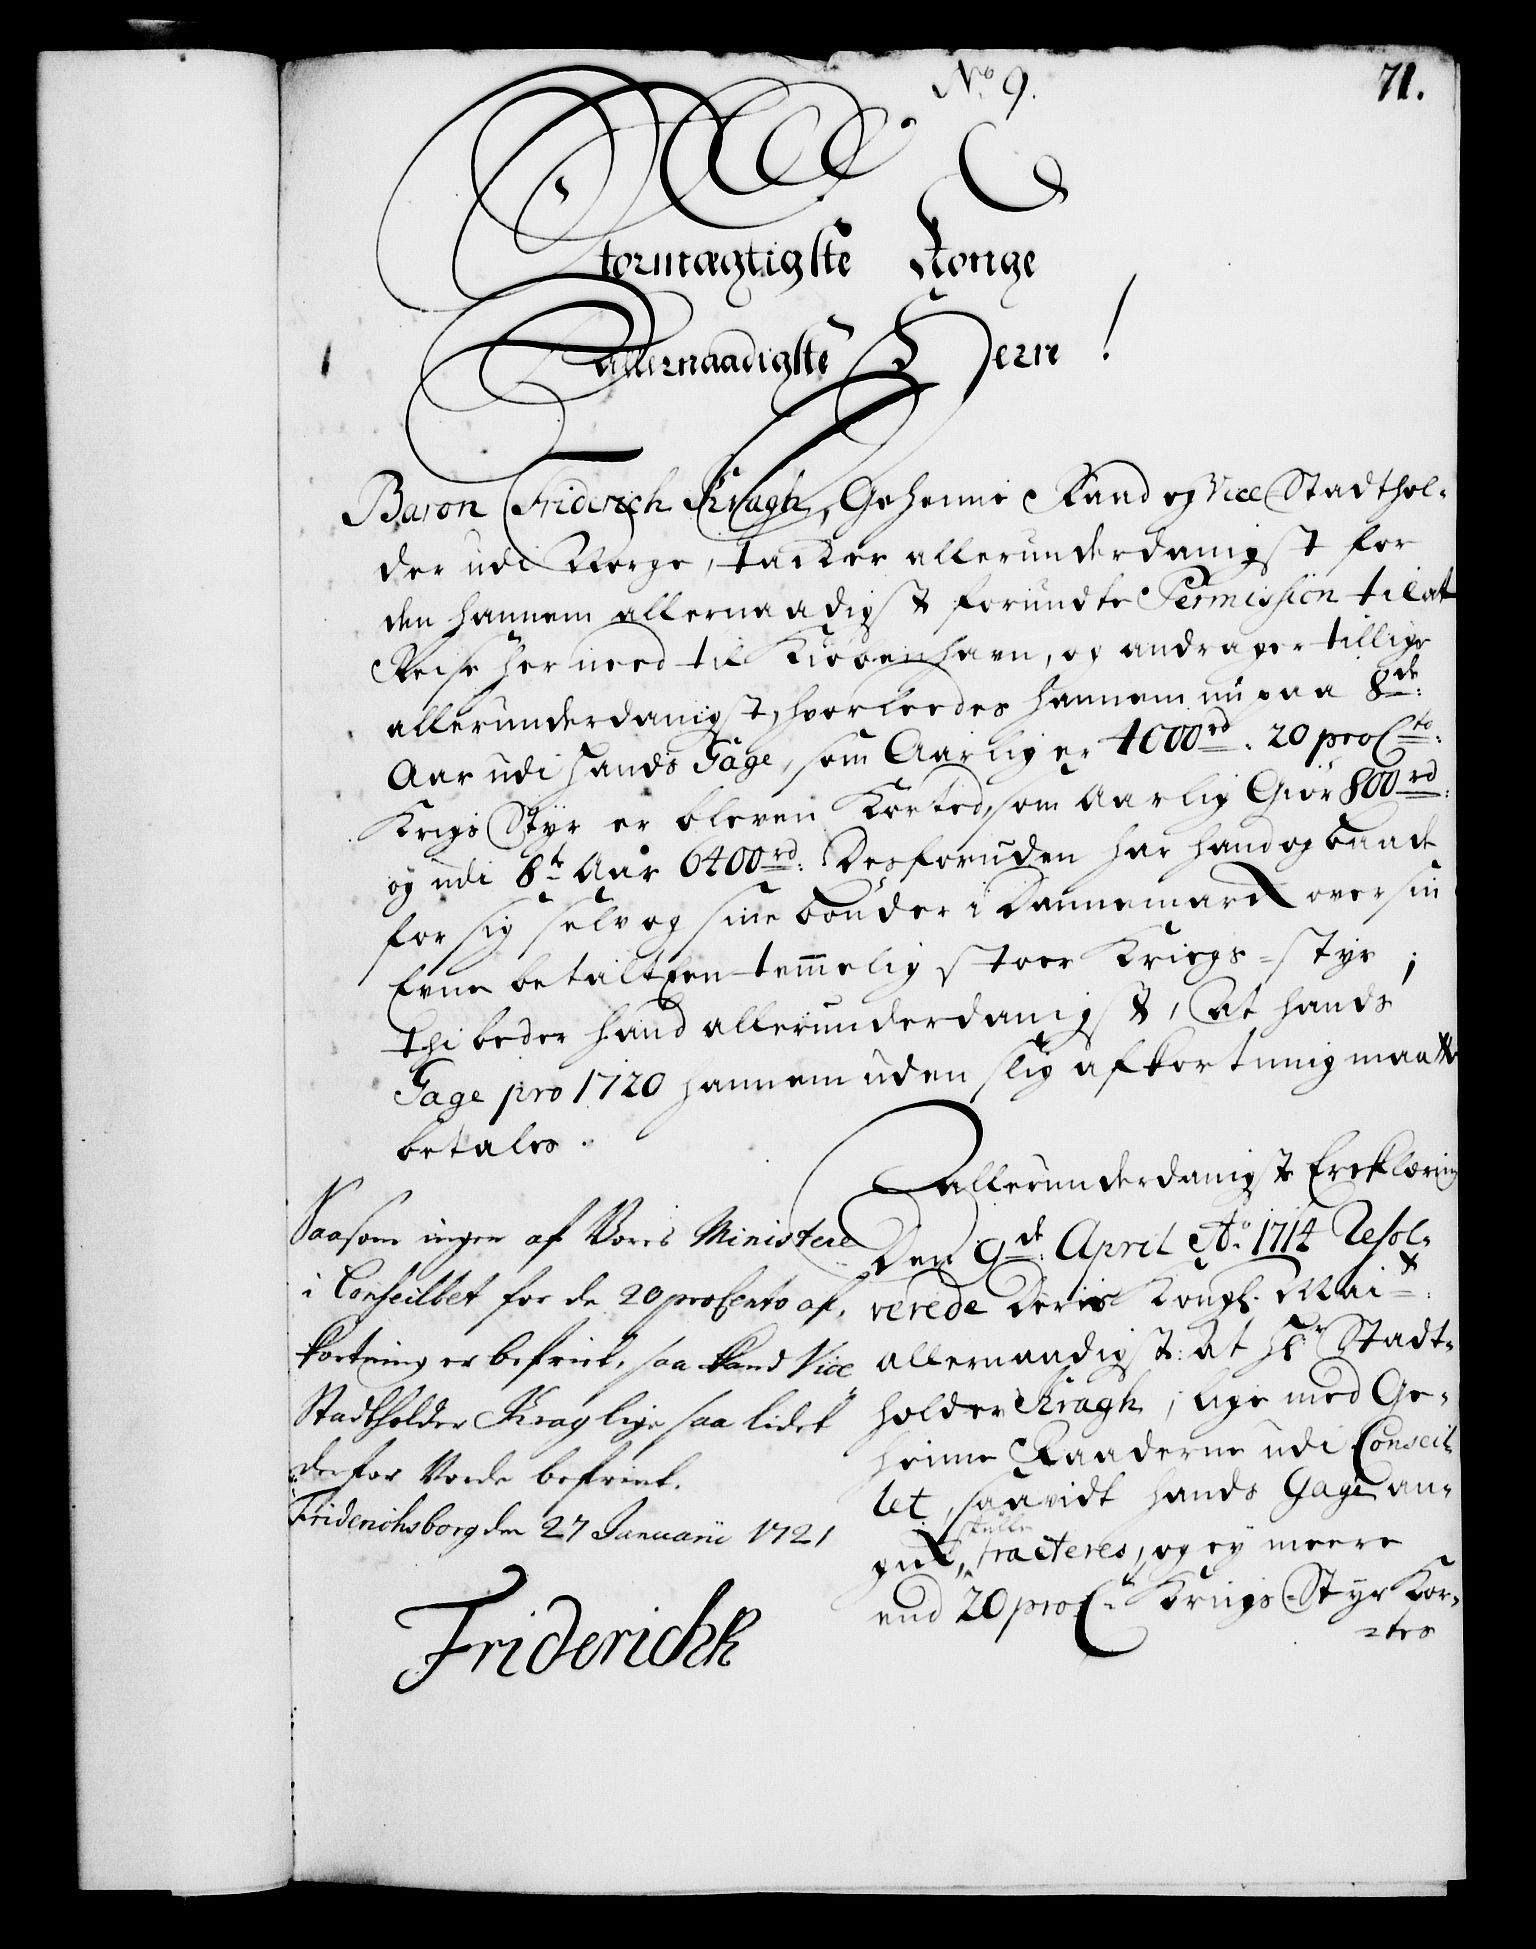 No 9.
71.
Stormægtigste Konge
allernaadigste Herre!
Baron Friderich Kragh, Geheime Raad og Vice Stadthol-
der udi Norge, tacker allerunderdanigst for
den hannem allernaadigst forundte Permission til at
Reise her need til Kiøbenhavn, og andrager tillige
allerunderdanigst, hvorleedes hannem nu paa 8de:
Aar udi hands Gage, som Aarlig er 4000rd. 20 pro Cto:
Krigs Styr er bleven Korted, som Aarlig Giør 800rd:
og udi 8te Aar 6400rd: Desforuden har hand og baade
for sig selv og sine bønder i Dannemarck over sin
Evne betalt en temmelig stoer Kriegs-styr;
thi beder hand allerunderdanigst, At hands
Gage pro 1720 hannem uden slig afkortning maatte
betales.
allerunderdanigste Ercklæring
Den 9de: April Ao. 1714 Resol-
verede Deris Kongl. Mait:
allernaadigst: At Hr Stadt-
holder Kragh, lige med Ge-
heime Raaderne udi Conseil-
let, saavidt hands Gage an-
gik, skulle tracteres, og ey meere
end 20 pro Co Kriigs-Styr Kor-
tes
Saasom ingen af Vores Ministere
i Conseillet for de 20 pro Cento af-
kortning er befriet, saa kand Vice
Stadtholder Krag lige saa lidet
derfor Vorde befriet.
Friderichsborg den 27 Januarii 1721
Friderich R